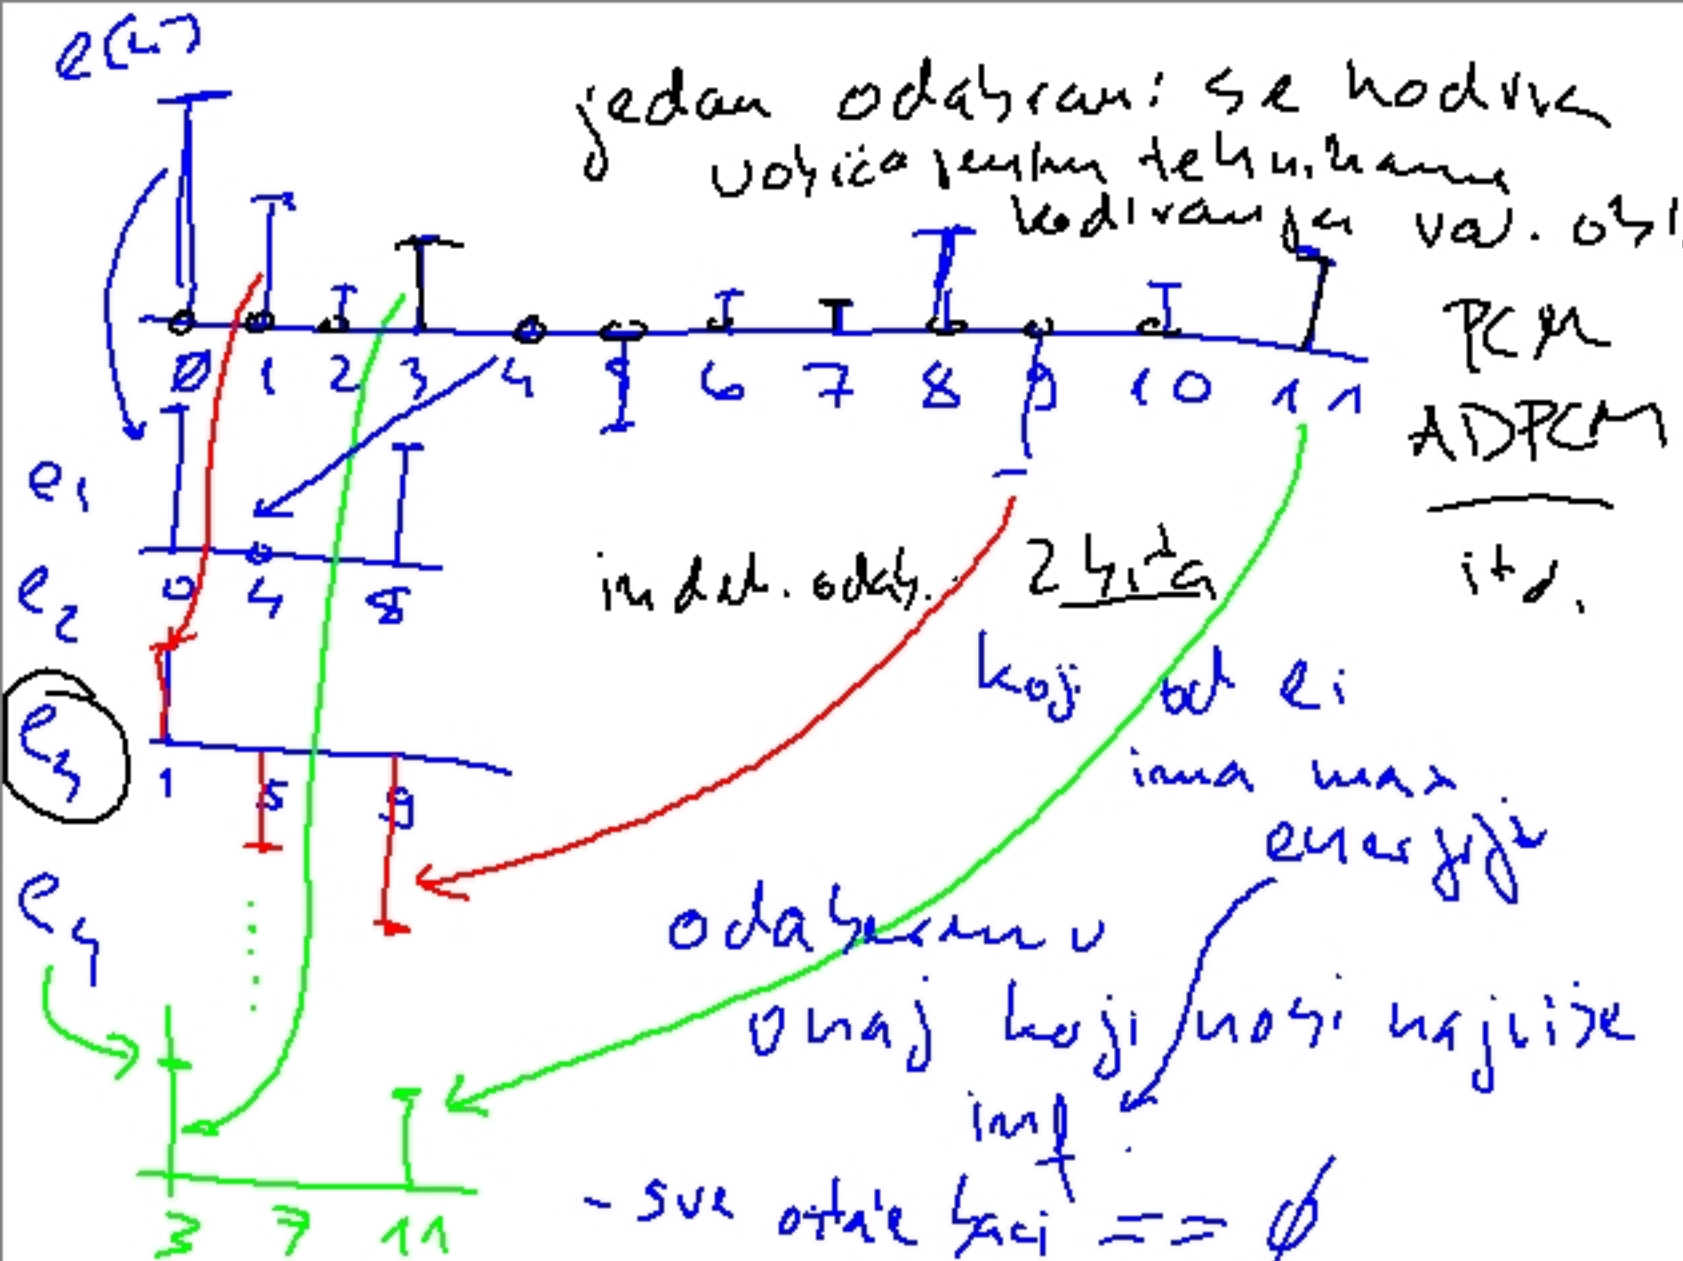 e(n)
jedan odabrani se kodira
uobičajenim tehnikama
kodiranja val. obl.
PCM
ADPCM
itd.
0 1 2 3 4 5 6 7 8 9 10 11
e1
0 4 8
indek. odab. 2 bita
e2
koji od ei
ima max
energiju
e3
1 5 9
e4
odaberemo
onaj koji nosi najviše
inf.
- sve ostale baci == ø
3 7 11